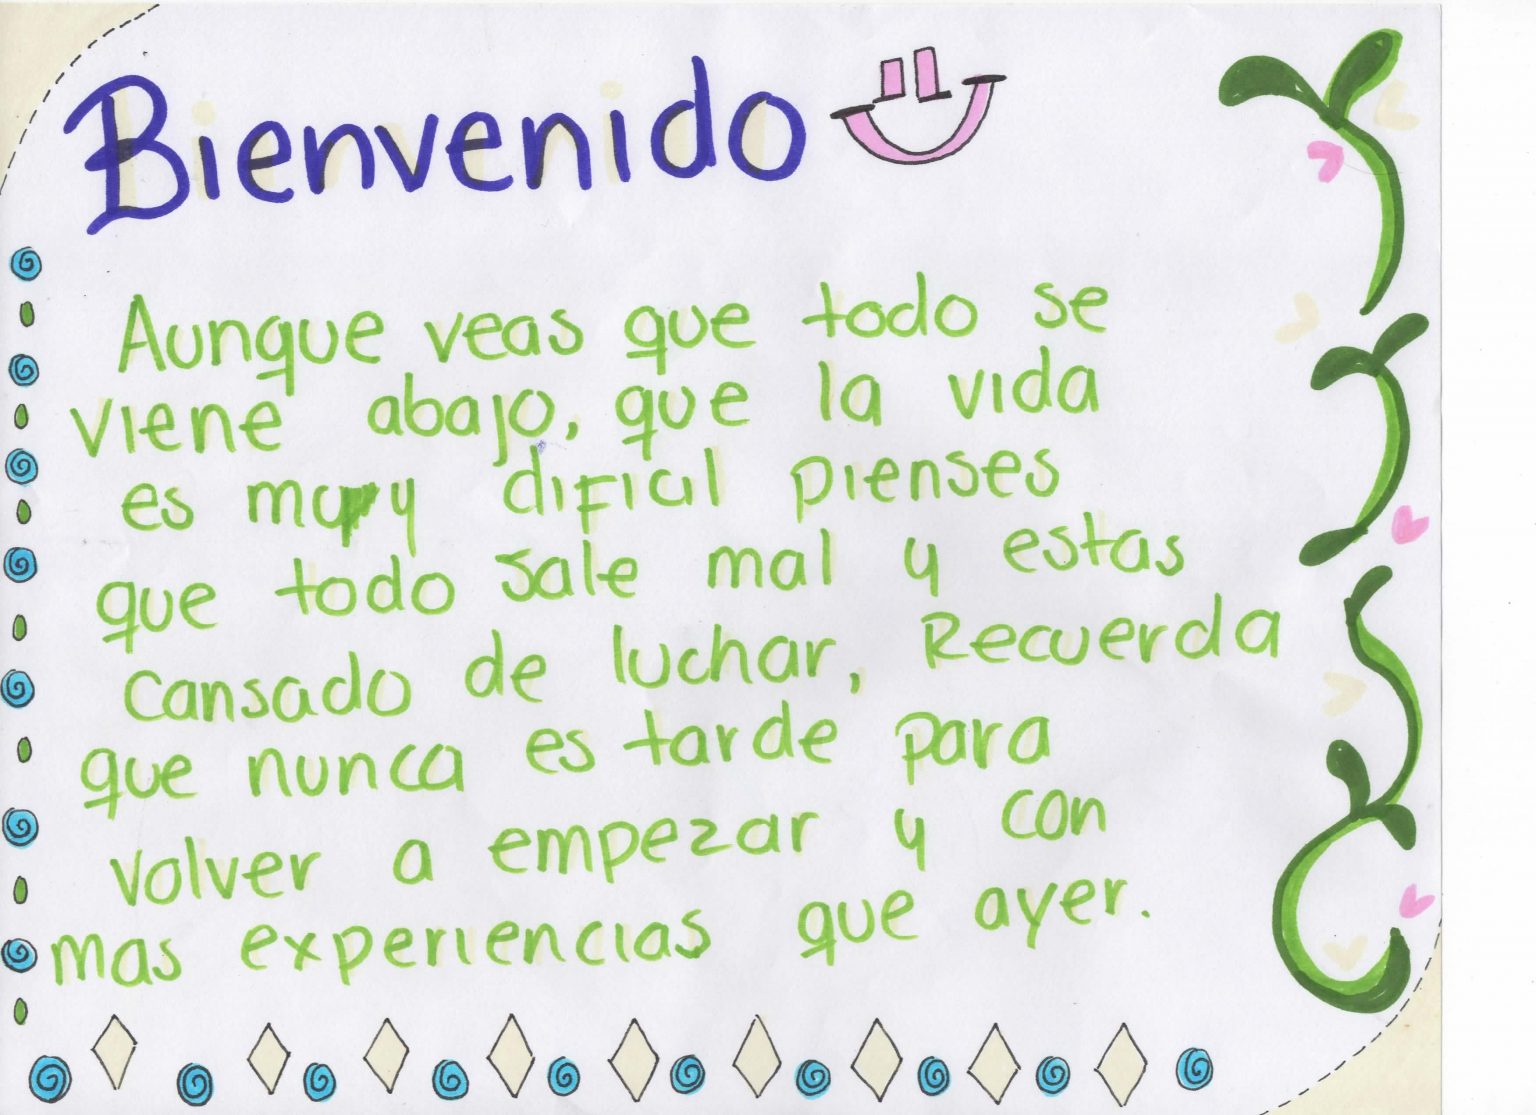 Bienvenido
Aunque veas que todo se
viene abajo, que la vida
es muy dificil pienses
que todo sale mal y estas
cansado de luchar, Recuerda
que nunca es tarde para
volver a empezar y con
mas experiencias que ayer.